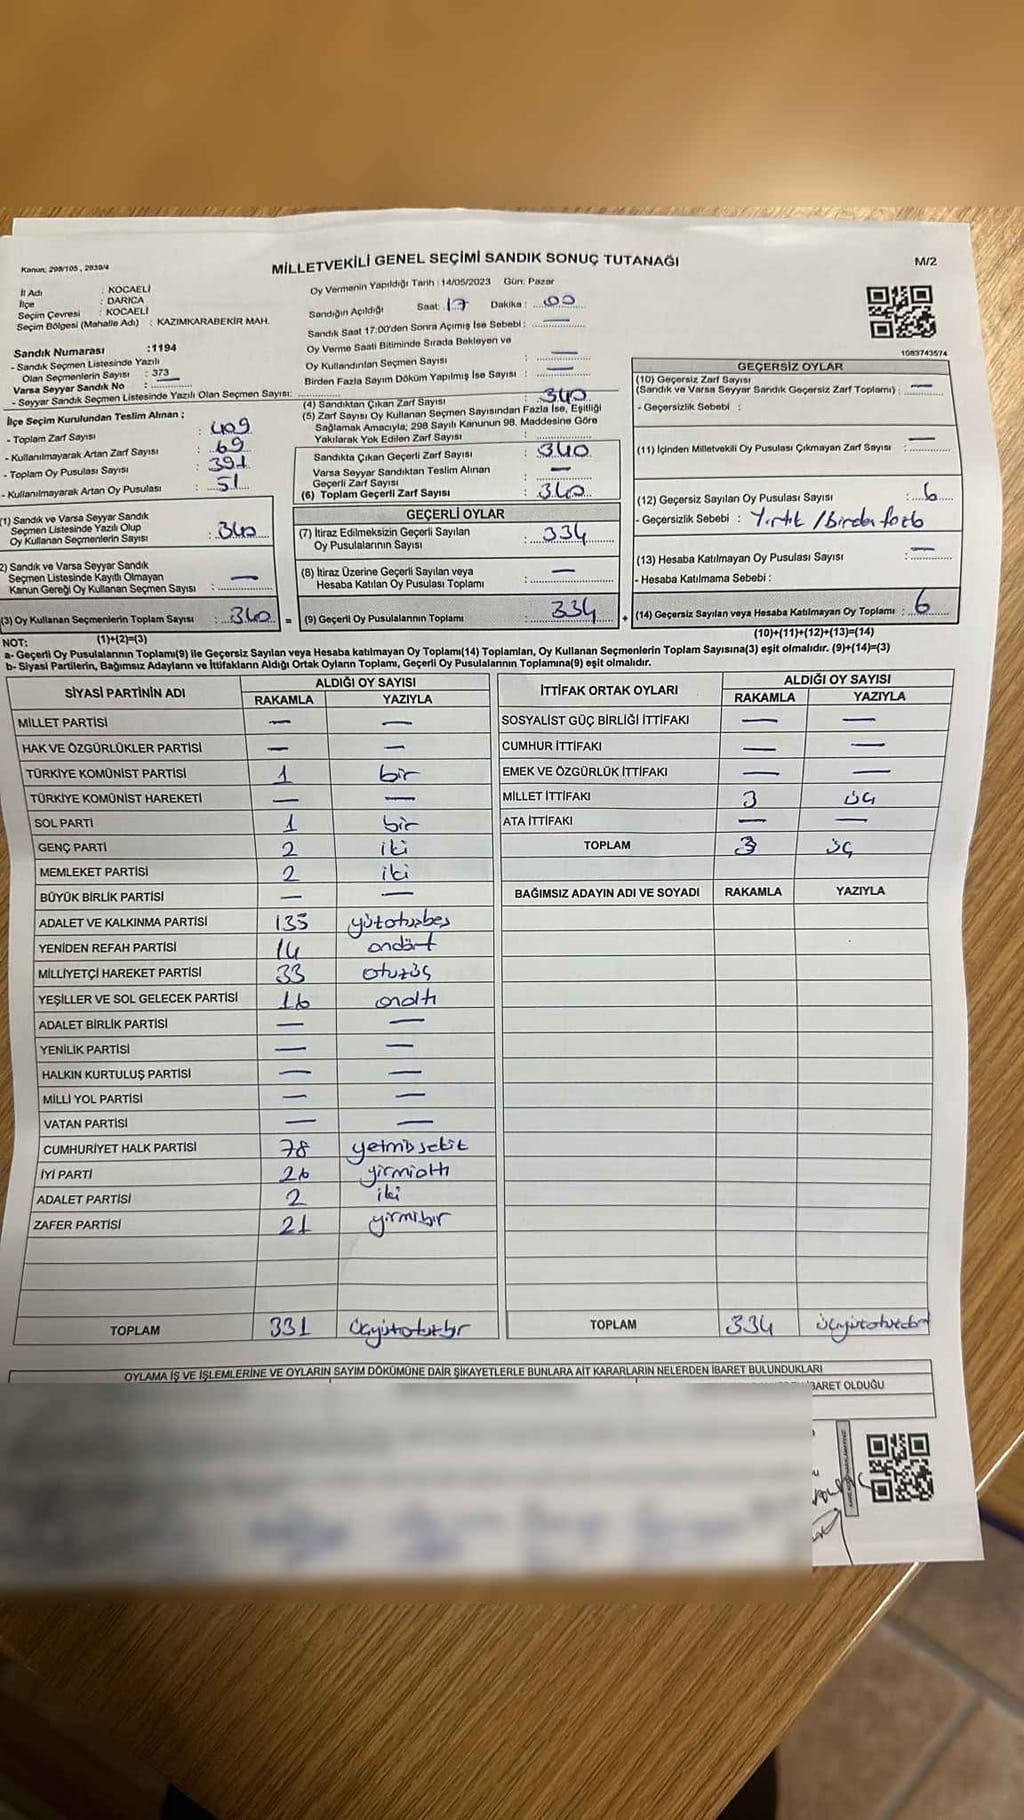 Kanun; 298/105 , 2839/4
MİLLETVEKİLİ GENEL SEÇİMİ SANDIK SONUÇ TUTANAĞI
M/2
İl Adı : KOCAELİ
İlçe : DARICA
Seçim Çevresi : KOCAELİ
Seçim Bölgesi (Mahalle Adı) : KAZIMKARABEKİR MAH.
Sandık Numarası :1194
- Sandık Seçmen Listesinde Yazılı
Olan Seçmenlerin Sayısı : 373
Varsa Seyyar Sandık No : —
- Seyyar Sandık Seçmen Listesinde Yazılı Olan Seçmen Sayısı:
Oy Vermenin Yapıldığı Tarih : 14/05/2023 Gün: Pazar
Sandığın Açıldığı Saat: 17 Dakika : 00
Sandık Saat 17:00'den Sonra Açılmış İse Sebebi : —
Oy Verme Saati Bitiminde Sırada Bekleyen ve
Oy Kullandırılan Seçmen Sayısı : —
Birden Fazla Sayım Döküm Yapılmış İse Sayısı : —
1083743574
İlçe Seçim Kurulundan Teslim Alınan ;
- Toplam Zarf Sayısı : 409
- Kullanılmayarak Artan Zarf Sayısı : 69
- Toplam Oy Pusulası Sayısı : 391
- Kullanılmayarak Artan Oy Pusulası : 51
(1) Sandık ve Varsa Seyyar Sandık
Seçmen Listesinde Yazılı Olup
Oy Kullanan Seçmenlerin Sayısı : 340
2) Sandık ve Varsa Seyyar Sandık
Seçmen Listesinde Kayıtlı Olmayan
Kanun Gereği Oy Kullanan Seçmen Sayısı : —
(3) Oy Kullanan Seçmenlerin Toplam Sayısı : 340 =
(4) Sandıktan Çıkan Zarf Sayısı : 340
(5) Zarf Sayısı Oy Kullanan Seçmen Sayısından Fazla İse, Eşitliği
Sağlamak Amacıyla; 298 Sayılı Kanunun 98. Maddesine Göre
Yakılarak Yok Edilen Zarf Sayısı :
Sandıkta Çıkan Geçerli Zarf Sayısı : 340
Varsa Seyyar Sandıktan Teslim Alınan
Geçerli Zarf Sayısı : —
(6) Toplam Geçerli Zarf Sayısı : 340
GEÇERLİ OYLAR
(7) İtiraz Edilmeksizin Geçerli Sayılan
Oy Pusulalarının Sayısı : 334
(8) İtiraz Üzerine Geçerli Sayılan veya
Hesaba Katılan Oy Pusulası Toplamı : —
(9) Geçerli Oy Pusulalarının Toplamı : 334 +
GEÇERSİZ OYLAR
(10) Geçersiz Zarf Sayısı
(Sandık ve Varsa Seyyar Sandık Geçersiz Zarf Toplamı) : —
- Geçersizlik Sebebi :
(11) İçinden Milletvekili Oy Pusulası Çıkmayan Zarf Sayısı : —
(12) Geçersiz Sayılan Oy Pusulası Sayısı : 6
- Geçersizlik Sebebi : Yırtık / birden fazla
(13) Hesaba Katılmayan Oy Pusulası Sayısı : —
- Hesaba Katılmama Sebebi :
(14) Geçersiz Sayılan veya Hesaba Katılmayan Oy Toplamı : 6
NOT: (1)+(2)=(3)
(10)+(11)+(12)+(13)=(14)
a- Geçerli Oy Pusulalarının Toplamı(9) ile Geçersiz Sayılan veya Hesaba katılmayan Oy Toplamı(14) Toplamları, Oy Kullanan Seçmenlerin Toplam Sayısına(3) eşit olmalıdır. (9)+(14)=(3)
b- Siyasi Partilerin, Bağımsız Adayların ve İttifakların Aldığı Ortak Oyların Toplamı, Geçerli Oy Pusulalarının Toplamına(9) eşit olmalıdır.
SİYASİ PARTİNİN ADI
ALDIĞI OY SAYISI
RAKAMLA YAZIYLA
MİLLET PARTİSİ — —
HAK VE ÖZGÜRLÜKLER PARTİSİ — —
TÜRKİYE KOMÜNİST PARTİSİ 1 bir
TÜRKİYE KOMÜNİST HAREKETİ — —
SOL PARTİ 1 bir
GENÇ PARTİ 2 iki
MEMLEKET PARTİSİ 2 iki
BÜYÜK BİRLİK PARTİSİ — —
ADALET VE KALKINMA PARTİSİ 135 yüzotuzbeş
YENİDEN REFAH PARTİSİ 14 ondört
MİLLİYETÇİ HAREKET PARTİSİ 33 otuzüç
YEŞİLLER VE SOL GELECEK PARTİSİ 16 onaltı
ADALET BİRLİK PARTİSİ — —
YENİLİK PARTİSİ — —
HALKIN KURTULUŞ PARTİSİ — —
MİLLİ YOL PARTİSİ — —
VATAN PARTİSİ — —
CUMHURİYET HALK PARTİSİ 78 yetmişsekiz
İYİ PARTİ 26 yirmialtı
ADALET PARTİSİ 2 iki
ZAFER PARTİSİ 21 yirmibir
TOPLAM 331 üçyüzotuzbir
İTTİFAK ORTAK OYLARI
ALDIĞI OY SAYISI
RAKAMLA YAZIYLA
SOSYALİST GÜÇ BİRLİĞİ İTTİFAKI — —
CUMHUR İTTİFAKI — —
EMEK VE ÖZGÜRLÜK İTTİFAKI — —
MİLLET İTTİFAKI 3 üç
ATA İTTİFAKI — —
TOPLAM 3 üç
BAĞIMSIZ ADAYIN ADI VE SOYADI RAKAMLA YAZIYLA
TOPLAM 334 üçyüzotuzdört
OYLAMA İŞ VE İŞLEMLERİNE VE OYLARIN SAYIM DÖKÜMÜNE DAİR ŞİKAYETLERLE BUNLARA AİT KARARLARIN NELERDEN İBARET BULUNDUKLARI
İBARET OLDUĞU